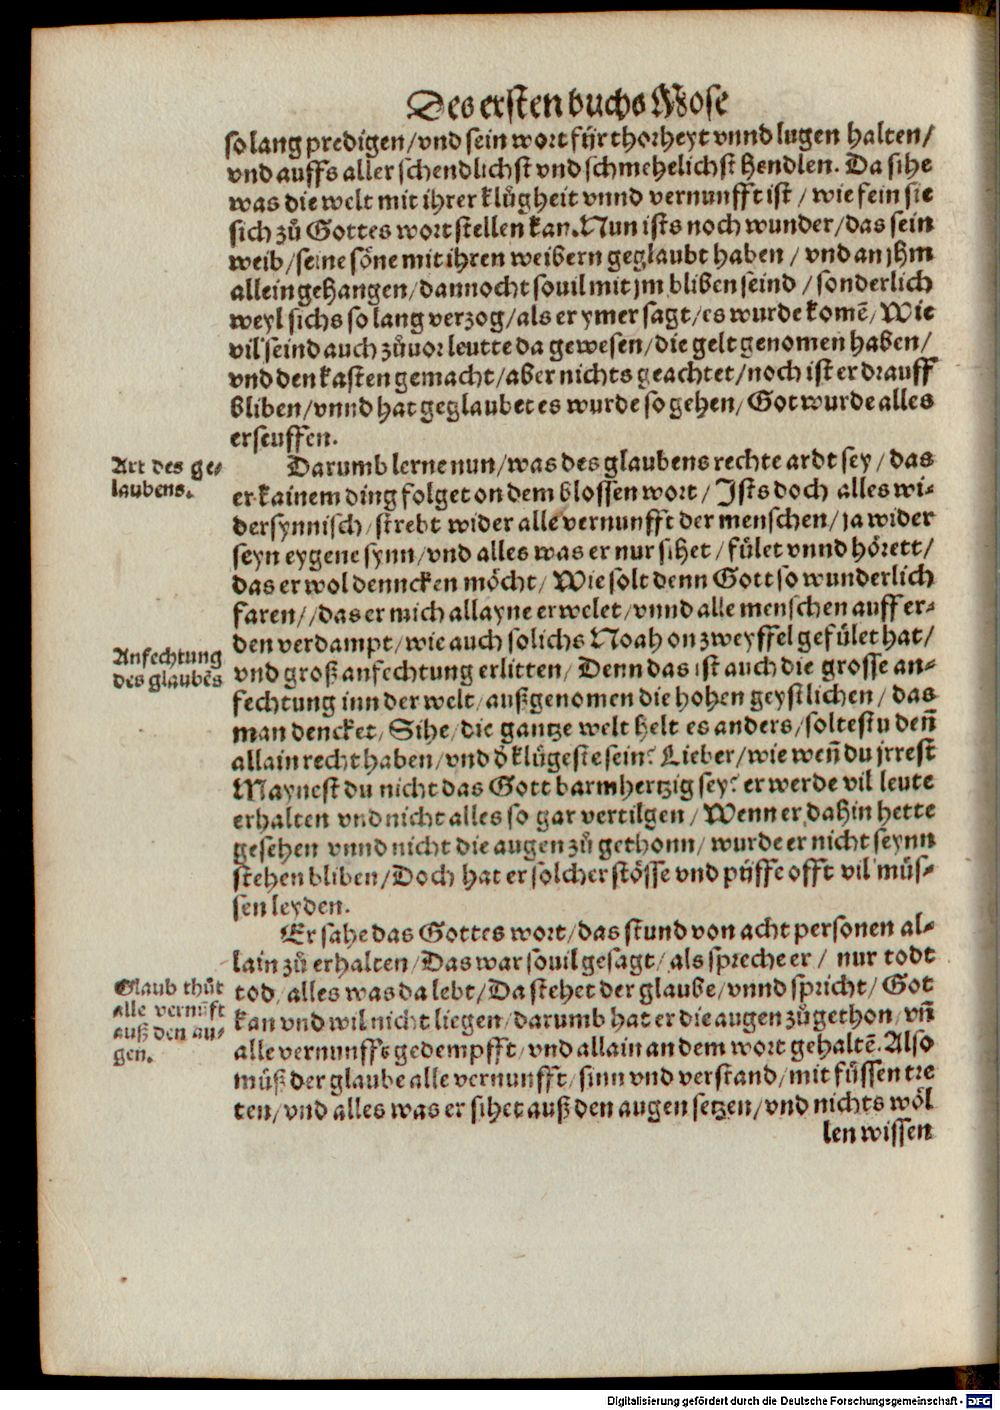 Des ersten buchs Mose
so lang predigen/vnd sein wort für thorheyt vnnd lugen halten/
vnd auffs aller schendlichst vnd schmehelichst hendlen. Da sihe
was die welt mit ihrer klůgheit vnnd vernunfft ist / wie fein sie
sich zů Gottes wort stellen kan. Nun ists noch wunder/das sein
weib/seine söne mit ihren weibern geglaubt haben / vnd an jhm
allein gehangen/dannocht souil mit jm bliben seind /sonderlich
weyl sichs so lang verzog/als er ymer sagt/es wurde komē/Wie
vil seind auch zůuor leutte da gewesen/die gelt genomen haben/
vnd den kasten gemacht/aber nichts geachtet/noch ist er drauff
bliben/vnnd hat geglaubet es wurde so gehen/Got wurde alles
erseuffen.
Art des ge-
laubens.
Darumb lerne nun/was des glaubens rechte ardt sey/das
er kainem ding folget on dem blossen wort/Ists doch alles wi-
dersynnisch/strebt wider alle vernunfft der menschen/ja wider
seyn eygene synn/vnd alles was er nur sihet/fület vnnd hörett/
das er wol denncken möcht/Wie solt denn Gott so wunderlich
faren//das er mich allayne erwelet/vnnd alle menschen auff er-
den verdampt/wie auch solichs Noah on zweyffel gefület hat/
Anfechtung
des glaubēs
vnd groß anfechtung erlitten/Denn das ist auch die grosse an-
fechtung inn der welt/außgenomen die hohen geystlichen/das
man dencket/Sihe/die gantze welt helt es anders/soltestu deñ
allain recht haben/vnd d̕ klügeste sein? Lieber/wie weñ du jrrest
Maynest du nicht das Gott barmhertzig sey? er werde vil leute
erhalten vnd nicht alles so gar vertilgen/Wenn er dahin hette
gesehen vnnd nicht die augen zů gethonn/wurde er nicht seynn
stehen bliben/Doch hat er solcher stösse vnd püffe offt vil müs-
sen leyden.
Er sahe das Gottes wort/das stund von acht personen al-
lain zů erhalten/Das war souil gesagt/als spreche er/ nur todt
Glaub thůt
alle vernūft
auß den au-
gen.
tod/alles was da lebt/Da stehet der glaube/vnnd spricht/Got
kan vnd wil nicht liegen/darumb hat er die augen zů gethon/vñ
alle vernunffs gedempfft/vnd allain an dem wort gehaltē. Also
můß der glaube alle vernunfft/sinn vnd verstand/mit füssen tre
ten/vnd alles was er sihet auß den augen setzen/vnd nichts wöl
len wissen
Digitalisierung gefördert durch die Deutsche Forschungsgemeinschaft - DFG